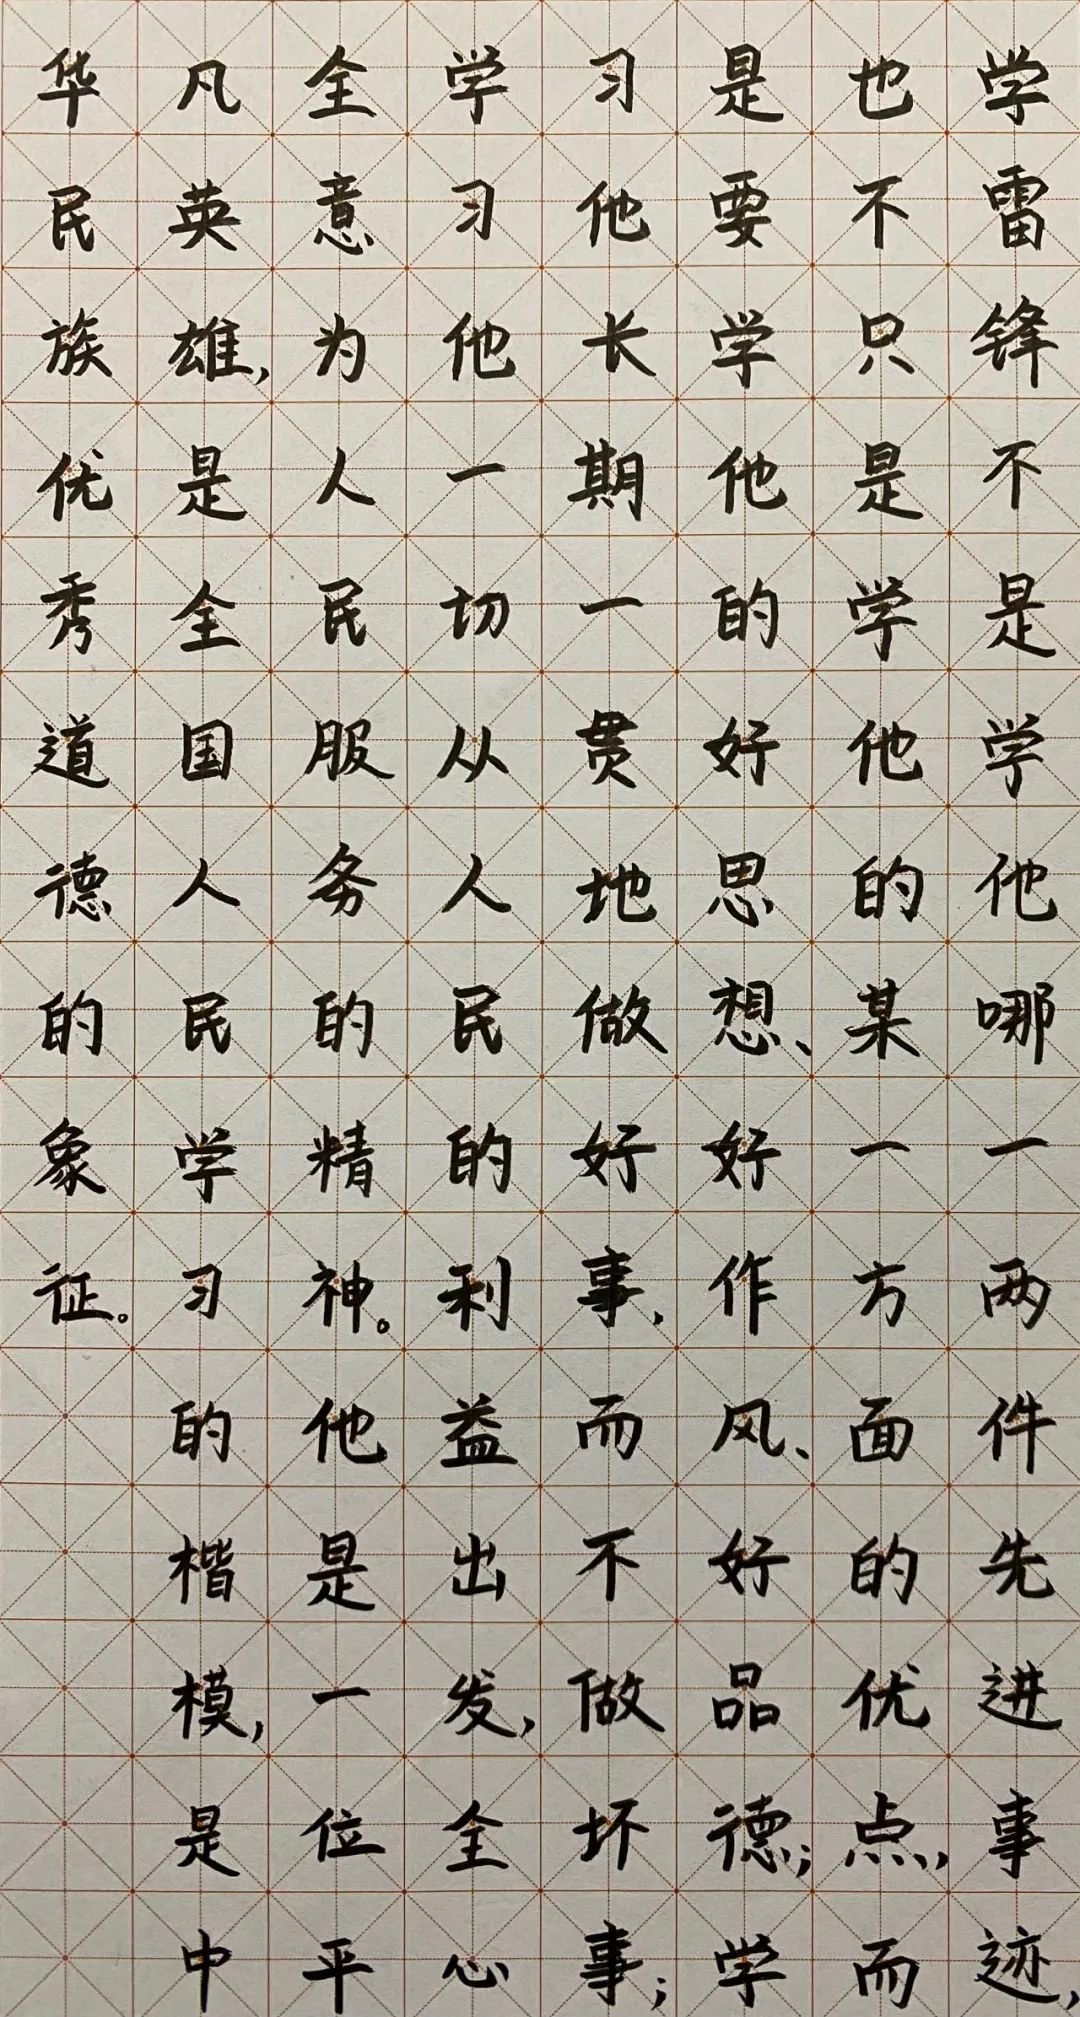 学雷锋不是学他哪一两件先进事迹，
也不只是学他的某一方面的优点，而
是要学他的好思想、好作风、好品德；学
习他长期一贯地做好事，而不做坏事；
学习他一切从人民的利益出发，全心
全意为人民服务的精神。他是一位平
凡英雄，是全国人民学习的楷模，是中
华民族优秀道德的象征。